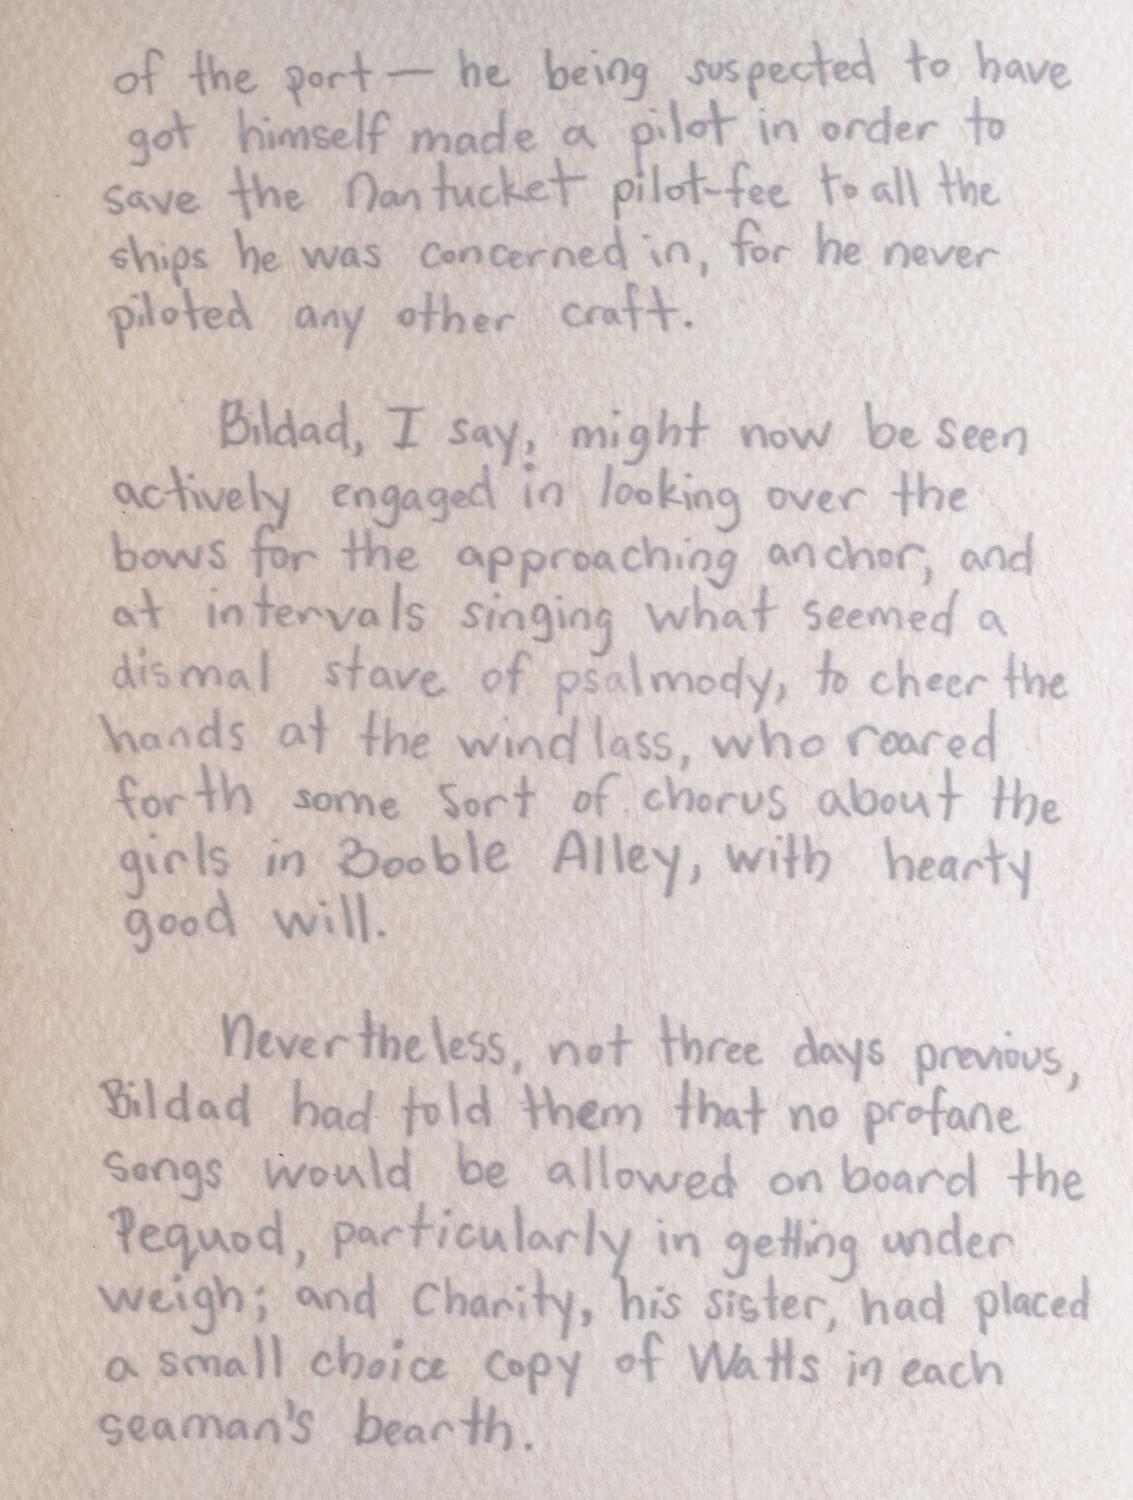 of the port — he being suspected to have
got himself made a pilot in order to
save the Nantucket pilot-fee to all the
ships he was concerned in, for he never
piloted any other craft.
Bildad, I say, might now be seen
actively engaged in looking over the
bows for the approaching anchor, and
at intervals singing what seemed a
dismal stave of psalmody, to cheer the
hands at the windlass, who roared
forth some sort of chorus about the
girls in Booble Alley, with hearty
good will.
Nevertheless, not three days previous,
Bildad had told them that no profane
songs would be allowed on board the
Pequod, particularly in getting under
weigh; and Charity, his sister, had placed
a small choice copy of Watts in each
seaman's bearth.